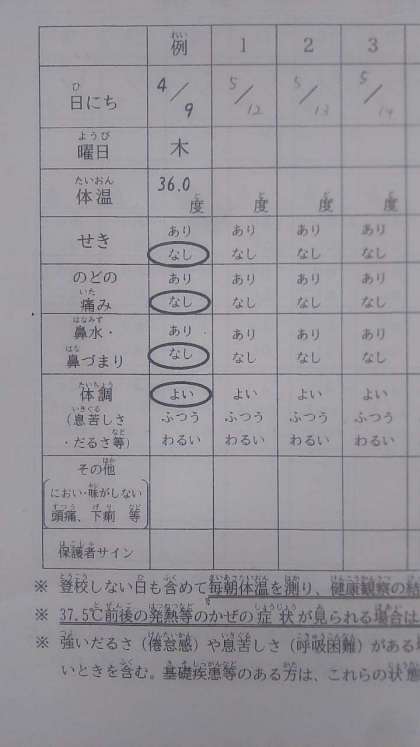 例 1 2 3
日にち 4/9 5/12 5/13 5/14
曜日 木
体温 36.0度 度 度 度
せき あり なし あり なし あり なし あり なし
のどの痛み あり なし あり なし あり なし あり なし
鼻水・鼻づまり あり なし あり なし あり なし あり なし
体調(息苦しさ・だるさ等) よい ふつう わるい よい ふつう わるい よい ふつう わるい よい ふつう わるい
その他
におい・味がしない
頭痛、下痢 等
保護者サイン
※ 登校しない日も含めて毎朝体温を測り、健康観察の結
※ 37.5℃前後の発熱等のかぜの症状が見られる場合は
※ 強いだるさ(倦怠感)や息苦しさ(呼吸困難)がある場
いときを含む。基礎疾患等のある方は、これらの状態